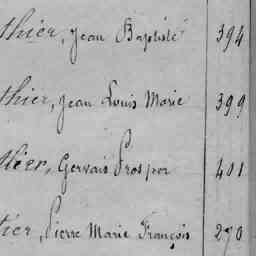 thier, Jean Baptiste 394
thier, Jean Louis Marie 399
thier, Gervais Prosper 401
tier, Pierre Marie François 270